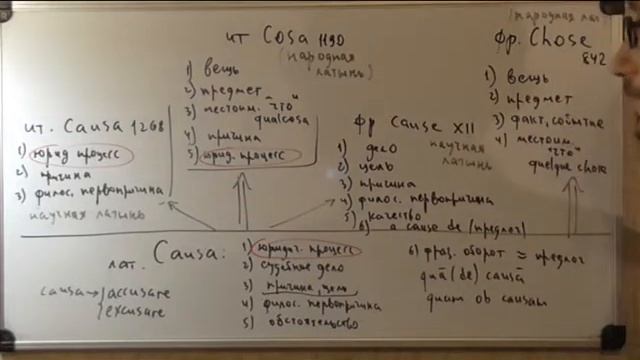 ит Cosa 1190
(народная латынь)
1) вещь
2) предмет
3) местоим. "что"
qualcosa
4) причина
5) юрид. процесс
(народная лат)
фр. Chose
842
1) вещь
2) предмет
3) факт, событие
4) местоим.
"что"
quelque chose
ит. Causa 1268
1) юрид процесс
2) причина
3) филос. первопричина
научная латынь
фр Cause XII
научная латынь
1) дело
2) цель
3) причина
4) филос. первопричина
5) качество
6) a cause de (предлог)
лат. Causa:
1) юридич. процесс
2) судебное дело
3) причина, цель
4) филос. первопричина
5) обстоятельство
6) фраз. оборот ≈ предлог
quā (de) causā
quam ob causam
causa → accusare
excusare